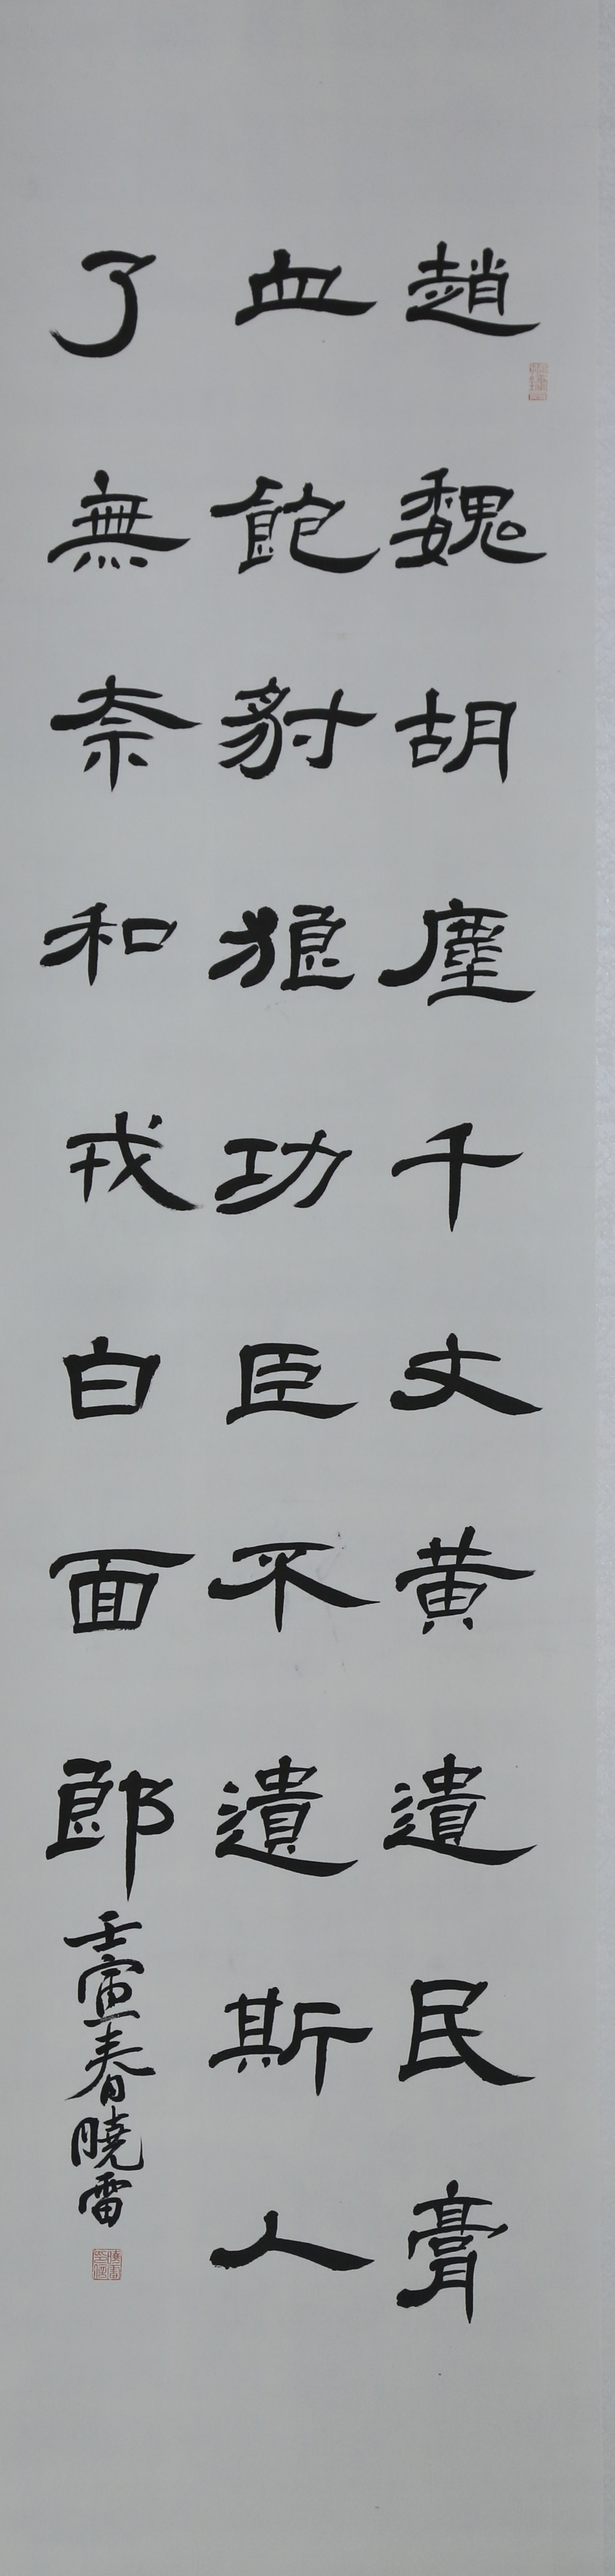 趙魏胡塵千丈黃遺民膏
血飽豺狼功臣不遣斯人
了無奈和戎白面郎
壬寅春曉雷